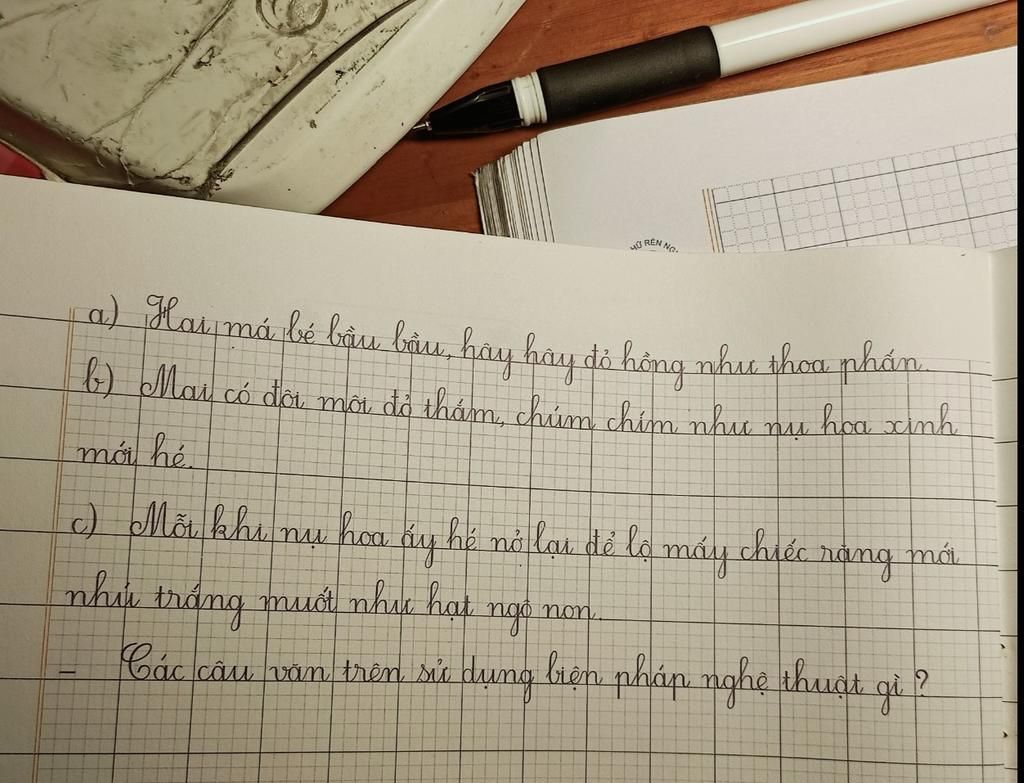 HỮ RÈN NG
a) Hai má bé bầu bầu, hây hây đỏ hồng như thoa phấn.
b) Mai có đôi môi đỏ thắm, chúm chím như nụ hoa xinh
mới hé.
c) Mỗi khi nụ hoa ấy hé nở lại để lộ mấy chiếc răng mới
nhú trắng muốt như hạt ngô non.
- Các câu văn trên sử dụng biện pháp nghệ thuật gì?